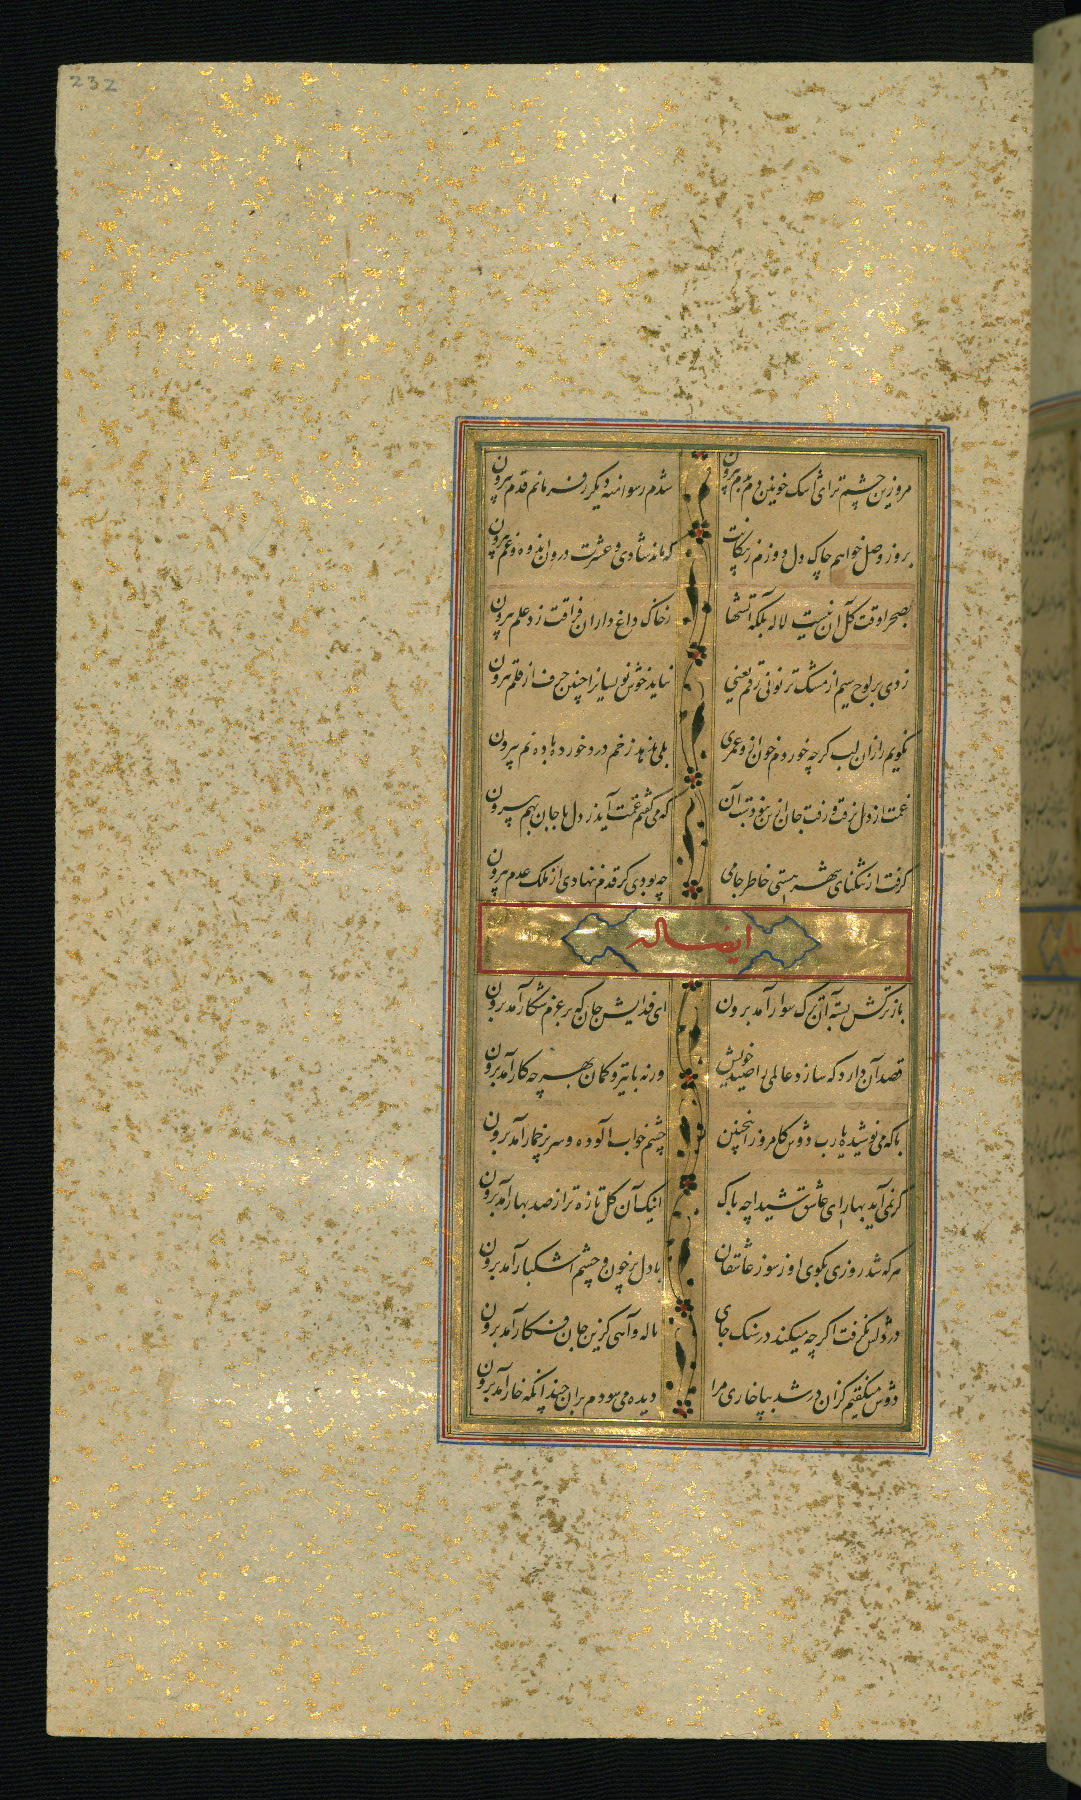 232
مروزین چشم تر ای اشک خونین دم بدم بیرون شدم رسوا منه دیگر ز فرمانم قدم بیرون
بروز وصل خواهم چاک دل دوزم ز پیکانت که ماند شادی و عشرت درون اندوه و غم بیرون
بصحرا وقت گل آن نیست لاله بلکه آتشها ز خاک داغ داران فراقت زد علم بیرون
زدی بر لوح سیم از مشک تر نونی رقم یعنی نیاید خوش نویسانرا چنین حرف از قلم بیرون
نگویم راز آن لب گرچه خوردم خون ازو عمری بلی ندهد ز خم دردخورده باده نم بیرون
غمت از دل نرفت و رفت جان از تن نبود آن که می گفتم غمت آید ز دل با جان بهم بیرون
گرفت از تنگنای شهر هستی خاطر جامی چه بودی گر قدم ننهادی از ملک عدم بیرون
ایضا له
باز ترکش بسته آن ترک سوار آمد برون ای فدایش جان که بر عزم شکار آمد برون
قصد آن دارد که سازد عالمی را صید خویش ورنه با تیر و کمان بهر چه کار آمد برون
باکه می نوشیده یارب دوش کامروز اینچنین چشم خواب آلوده و سر پرخمار آمد برون
گر نمی آید بهار ای عاشق شیدا چه باک اینک آن گل تازه تر از صد بهار آمد برون
هر که شد روزی بکوی او ز سوز عاشقان با دل پرخون و چشم اشکبار آمد برون
در دلش نگرفت اگرچه میکند در سنگ جای ناله و آهی کزین جان فکار آمد برون
دوش میگفتم کزان در شد بپا خاری مرا دیده می سودم بران چندانکه خار آمد برون